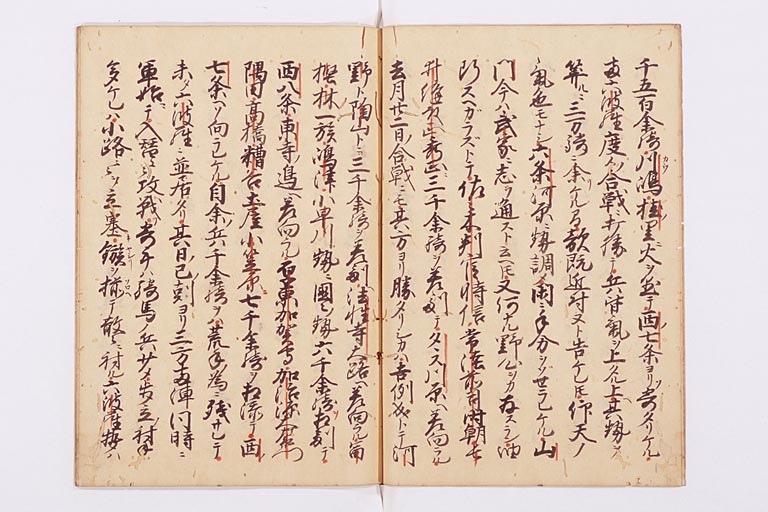 千五百余騎川嶋桂里ニ火ヲ懸テ西七条ヨリソ寄タリケル
両六波羅度々ノ合戦ニ打勝テ兵皆気ヲ上ケル上其勢ヲ
算ルニ三万騎ニ余ケル間敵既近付ヌト告ケレ𪜈仰天ノ
気色モナシ六条河原ニ勢調テ閑ニ手分ヲソセラレケル山
門今ハ武家ニ志ヲ通スト云𪜈又何ナル野心ヲカ存スラン油
断スヘカラストテ佐々木判官時信常陸前司時朝
井縫殿秀正ニ三千余騎ヲ差副テタヽスハ原ヘ差向ラル
去月廿二日ノ合戦ニモ其方ヨリ勝タリシカハ吉例也トテ河
野ト陶山トニ二千余騎ヲ差副法性寺大路ヘ差向ラル富
樫林一族嶋津小早川勢ニ国々勢六千余騎ヲ相副テ
西八条東寺辺ヘ差向ラル厚東加賀守加治源太左衛門
隅田高橋糟谷土屋小笠原七千余騎ヲ相添テ西
七条ヘソ向ラレケル自余兵千余騎ヲハ荒手ノ為ニ残サレテ
未タ六波羅ニ並居タリ其日ノ巳刻ヨリ三方両陣同時ニ
軍始テ入替々々攻戦寄手ハ騎馬ノ兵少ク歩立射手
多ケレハ小路々々ヲ塞鏃ヲ揃テ散々ニ射ル六波羅勢ハ